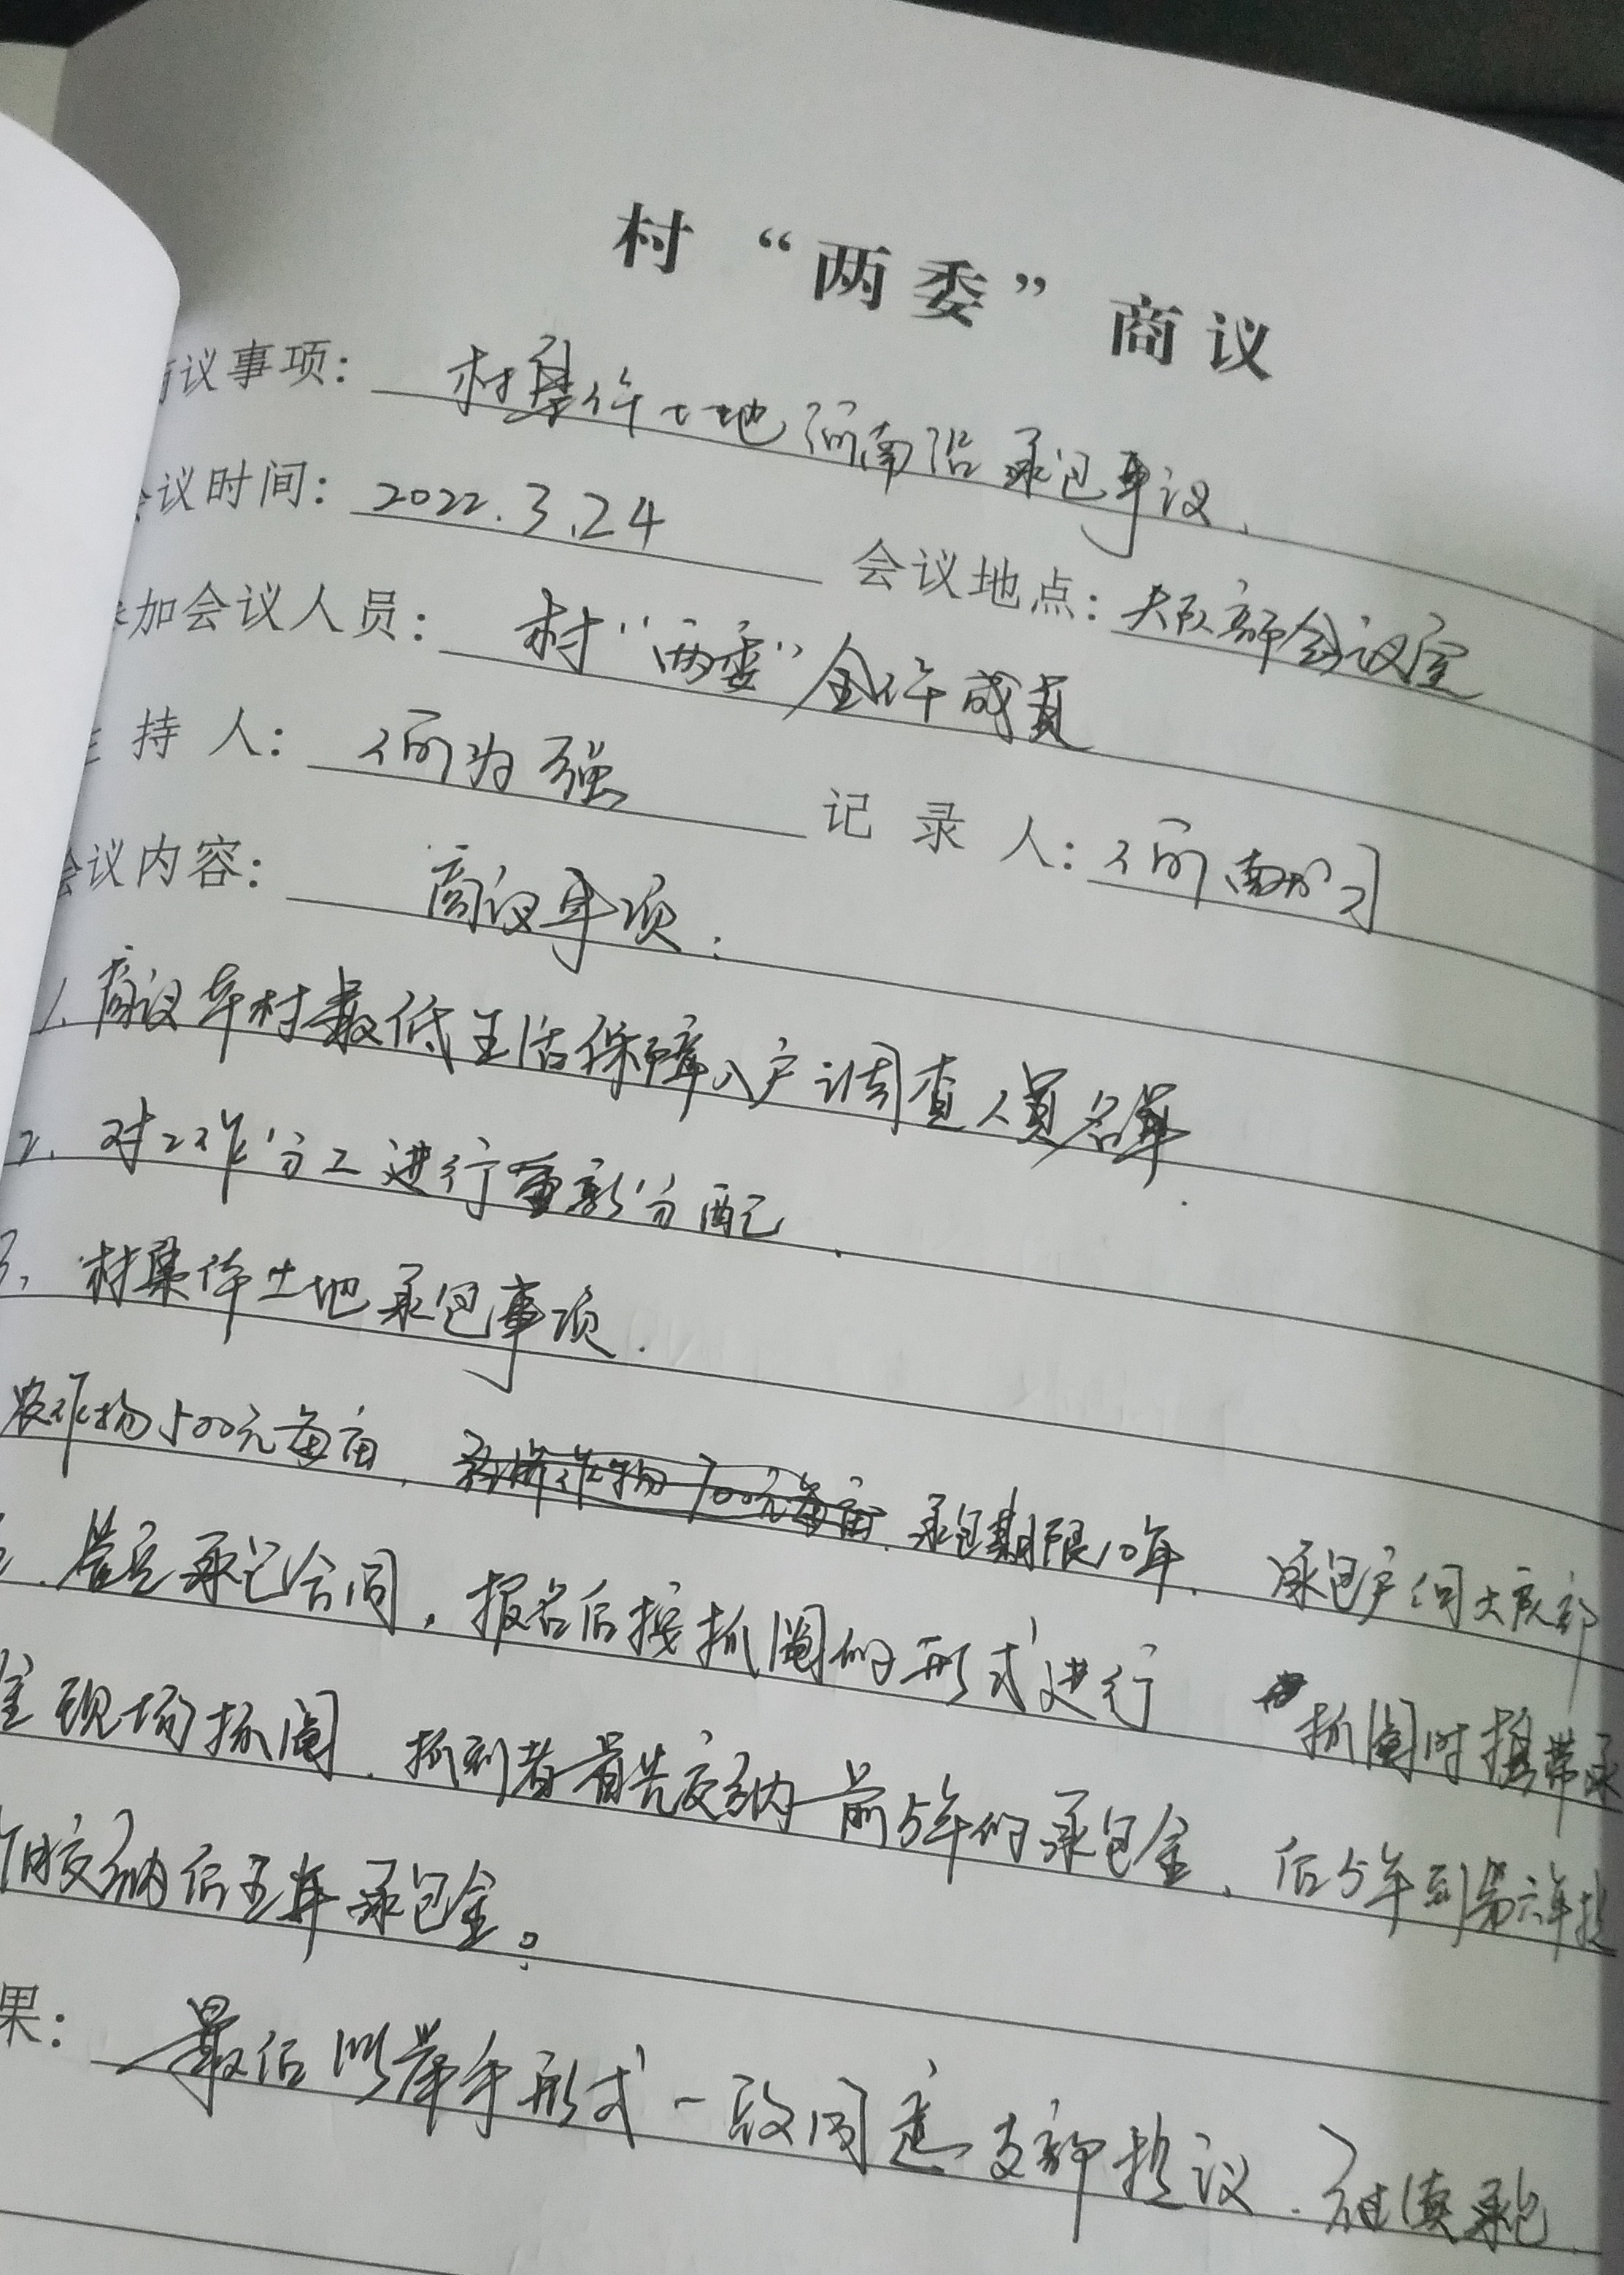 村“两委”商议
议事项： 村集体土地河南沿承包事议.
议时间： 2022.3.24 会议地点： 大队部会议室
加会议人员： 村“两委”全体成员
持 人： 何为强 记 录 人： 何
议内容： 商议事项：
1. 商议本村最低生活保障入户调查人员名单
2. 对工作分工进行重新分配.
3. 村集体土地承包事项.
农作物500元每亩, 经济作物700元每亩. 承包期限10年. 承包户到大队部
签定承包合同, 报名后按抓阄的形式进行 抓阄时携带承
金现场抓阄. 抓到者首先交纳前5年的承包金, 后5年到第六年按
交纳后五年承包金。
果： 最后以举手形式一致同意支部提议.